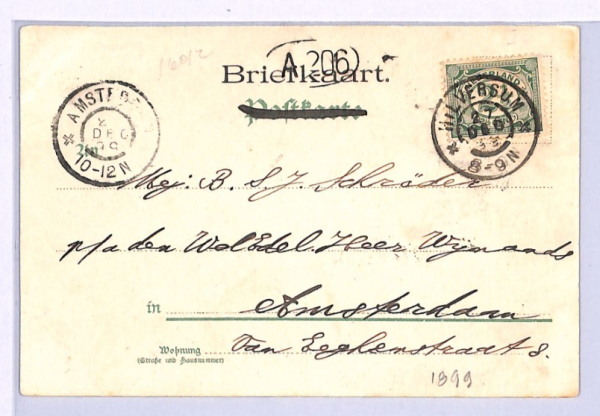 A 206
Briefkaart.
Postkarte
AMSTERD
2
DEC
99
10-12N
HILVERSUM
2
DEC
99
8-9N
Mej: B. S. J. Schröder
p/a den WelEdel. Heer Wijnands
in Amsterdam
Wohnung
(Straße und Hausnummer)
Van Eeghenstraat 8.
1899